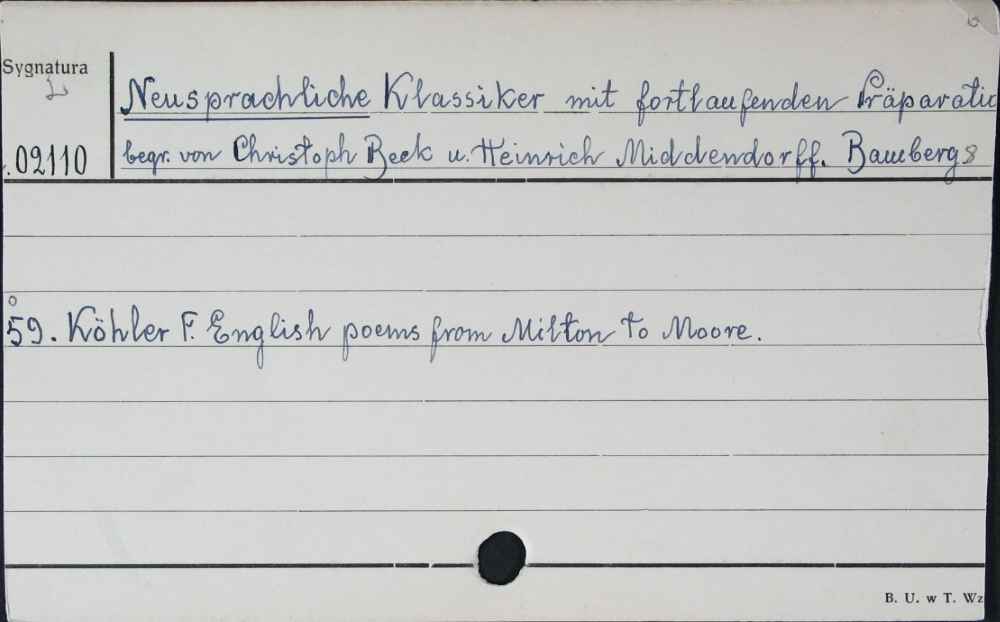 Sygnatura
Neusprachliche Klassiker mit fortlaufenden Präparatio
02110
begr. von Christoph Beck u. Heinrich Middendorff. Bamberg
59. Köhler F. English poems from Milton to Moore.
B. U. w T. Wz